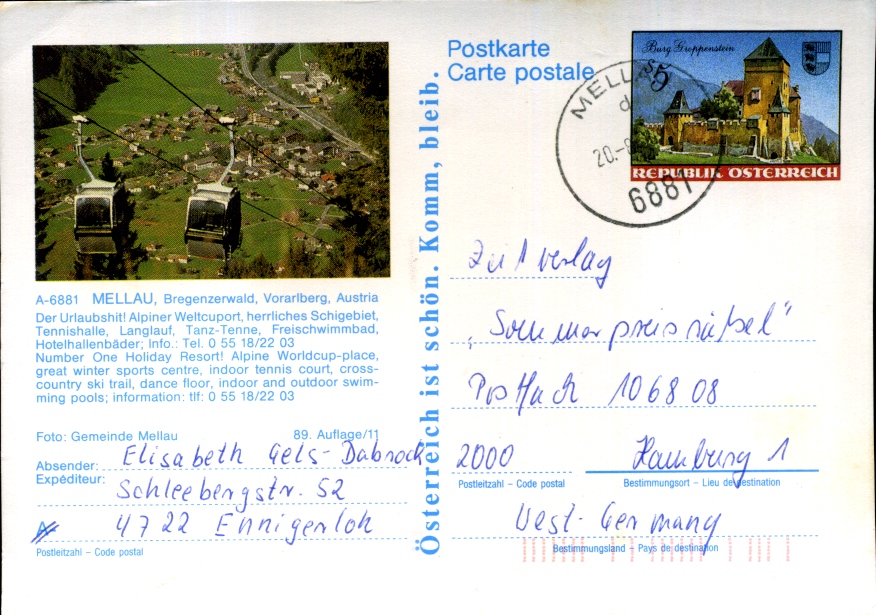 Postkarte
Carte postale
Burg Groppenstein
S5
REPUBLIK ÖSTERREICH
MELLAU
20.
6881
Österreich ist schön. Komm, bleib.
A-6881 MELLAU, Bregenzerwald, Vorarlberg, Austria
Der Urlaubshit! Alpiner Weltcuport, herrliches Schigebiet,
Tennishalle, Langlauf, Tanz-Tenne, Freischwimmbad,
Hotelhallenbäder; Info.: Tel. 0 55 18/22 03
Number One Holiday Resort! Alpine Worldcup-place,
great winter sports centre, indoor tennis court, cross-
country ski trail, dance floor, indoor and outdoor swim-
ming pools; information: tlf: 0 55 18/22 03
Foto: Gemeinde Mellau 89. Auflage/11
Absender: Elisabeth Gels-Dabrock
Expéditeur:
Schleebergstr. 52
A-
4722 Ennigerloh
Postleitzahl – Code postal
Zeitverlag
„Sommerpreisrätsel"
Postfach 106808
2000 Hamburg 1
Postleitzahl – Code postal Bestimmungsort – Lieu de destination
West-Germany
Bestimmungsland – Pays de destination